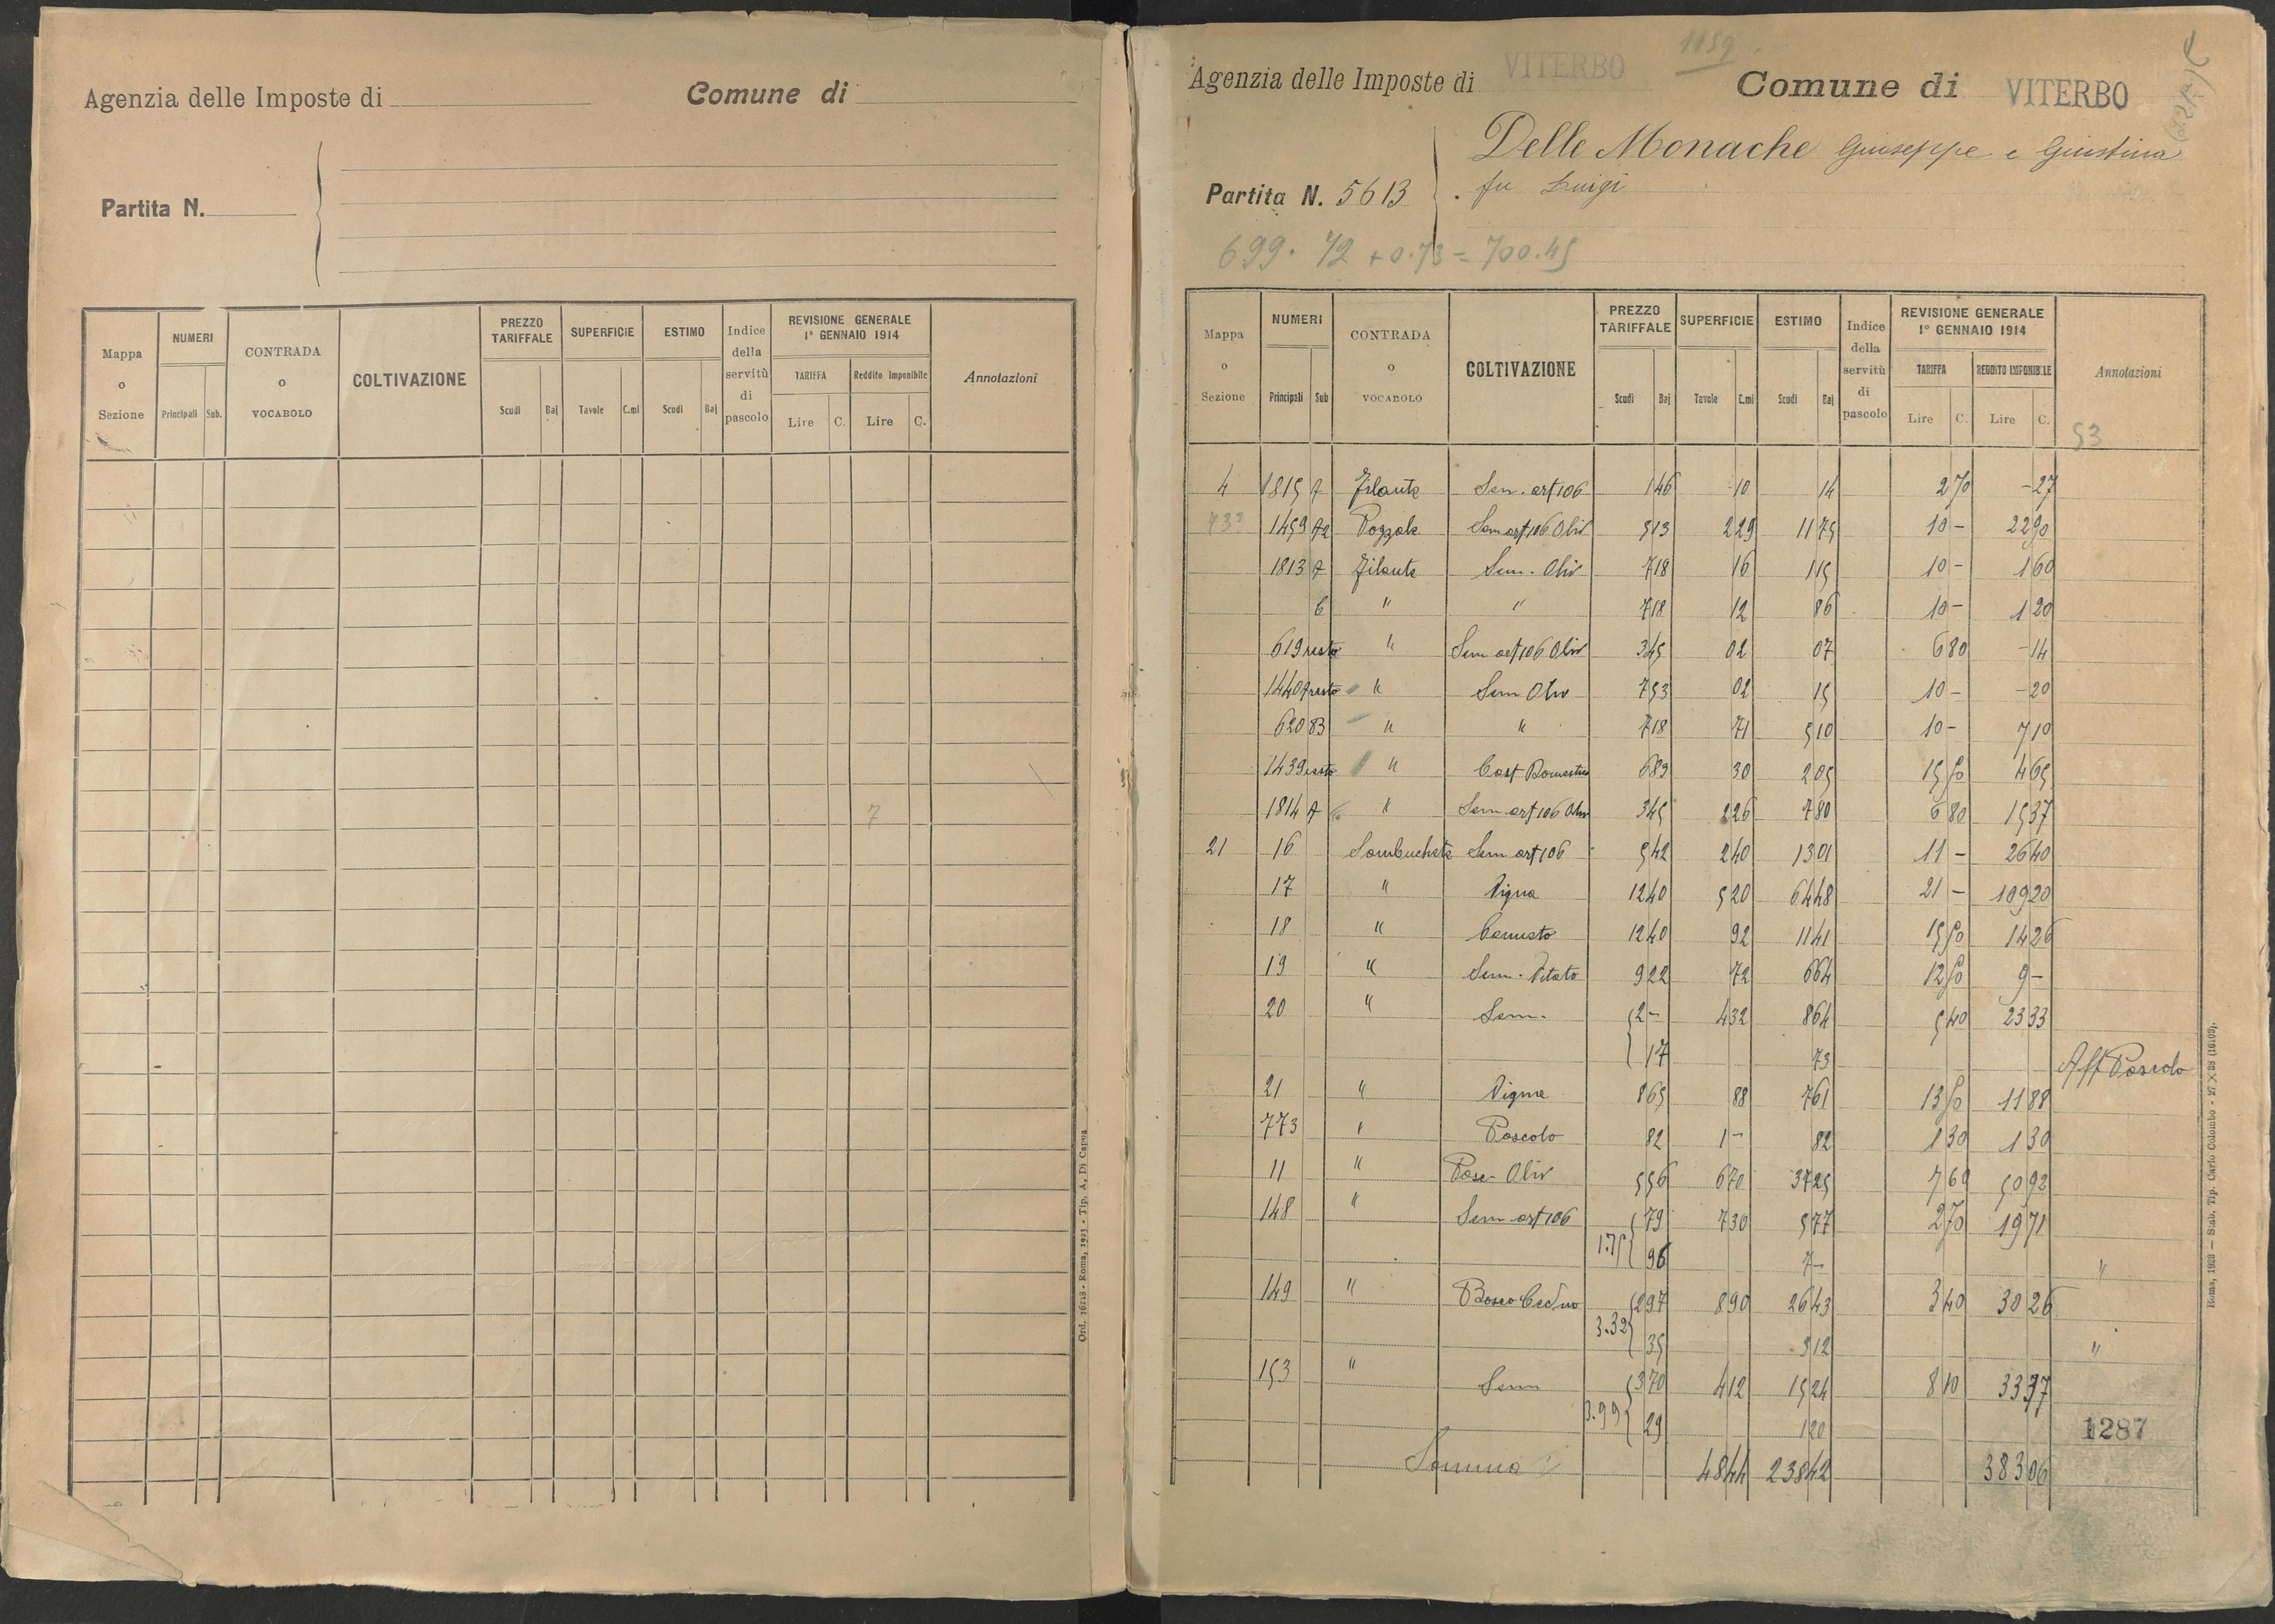 Agenzia delle Imposte di
Comune di
Partita N.
Mappa o Sezione
NUMERI
Principali Sub.
CONTRADA o VOCABOLO
COLTIVAZIONE
PREZZO TARIFFALE
Scudi Baj
SUPERFICIE
Tavole C.mi
ESTIMO
Scudi Baj
Indice della servitù di pascolo
REVISIONE GENERALE 1° GENNAIO 1914
TARIFFA
Lire C.
Reddito Imponibile
Lire C.
Annotazioni
7
Ord. 16218 - Roma, 1921 - Tip. A. Di Capua
1159
Agenzia delle Imposte di VITERBO
Comune di VITERBO
Delle Monache Giuseppe e Giustina
Partita N. 5613
fu Luigi
699.72 + 0.73 = 700.45
Mappa o Sezione
NUMERI
Principali Sub
CONTRADA o VOCABOLO
COLTIVAZIONE
PREZZO TARIFFALE
Scudi Baj
SUPERFICIE
Tavole C.mi
ESTIMO
Scudi Baj
Indice della servitù di pascolo
REVISIONE GENERALE 1° GENNAIO 1914
TARIFFA
Lire C.
REDDITO IMPONIBILE
Lire C.
Annotazioni
53
4 1815 A Filante Sem. art 106 1 46 10 14 2 70 - 27
1459 A2 Pozzale Sem art 106 Oliv 5 13 2 29 11 75 10 - 22 90
1813 A Filante Sem. Oliv 7 18 16 1 15 10 - 1 60
6 " " 7 18 12 86 10 - 1 20
619 resto " Sem art 106 Oliv 3 45 02 07 6 80 - 14
1440 A resto " Sem Oliv 7 53 02 15 10 - - 20
620 83 " " 7 18 71 5 10 10 - 7 10
1439 resto " Cast Domestico 6 83 30 2 05 15 50 4 65
1814 A " Sem art 106 Oliv 3 45 2 26 7 80 6 80 15 37
21 16 Sambucheta Sem art 106 5 42 2 40 13 01 11 - 26 40
17 " Vigna 12 40 5 20 64 48 21 - 109 20
18 " Canneto 12 40 92 11 41 15 50 14 26
19 " Sem. Vitato 9 22 72 6 64 12 50 9 -
20 " Sem. 2 - 4 32 8 64 5 40 23 33
17 73 Aff Pascolo
21 " Vigna 8 65 88 7 61 13 50 11 88
773 " Pascolo 82 1 - 82 1 30 1 30
11 " Pasc- Oliv 5 56 6 70 37 25 7 60 50 92
148 " Sem art 106 79 7 30 5 77 2 70 19 71
1.75 96 7 - "
149 " Bosco Ceduo 2 97 8 90 26 43 3 40 30 26
3.32 35 3 12 "
153 " Sem 3 70 4 12 15 24 8 10 33 37
3.99 29 1 20
1287
Somma 48 44 238 42 383 06
Roma, 1923 — Stab. Tip. Carlo Colombo - 27 X 38 (16103).